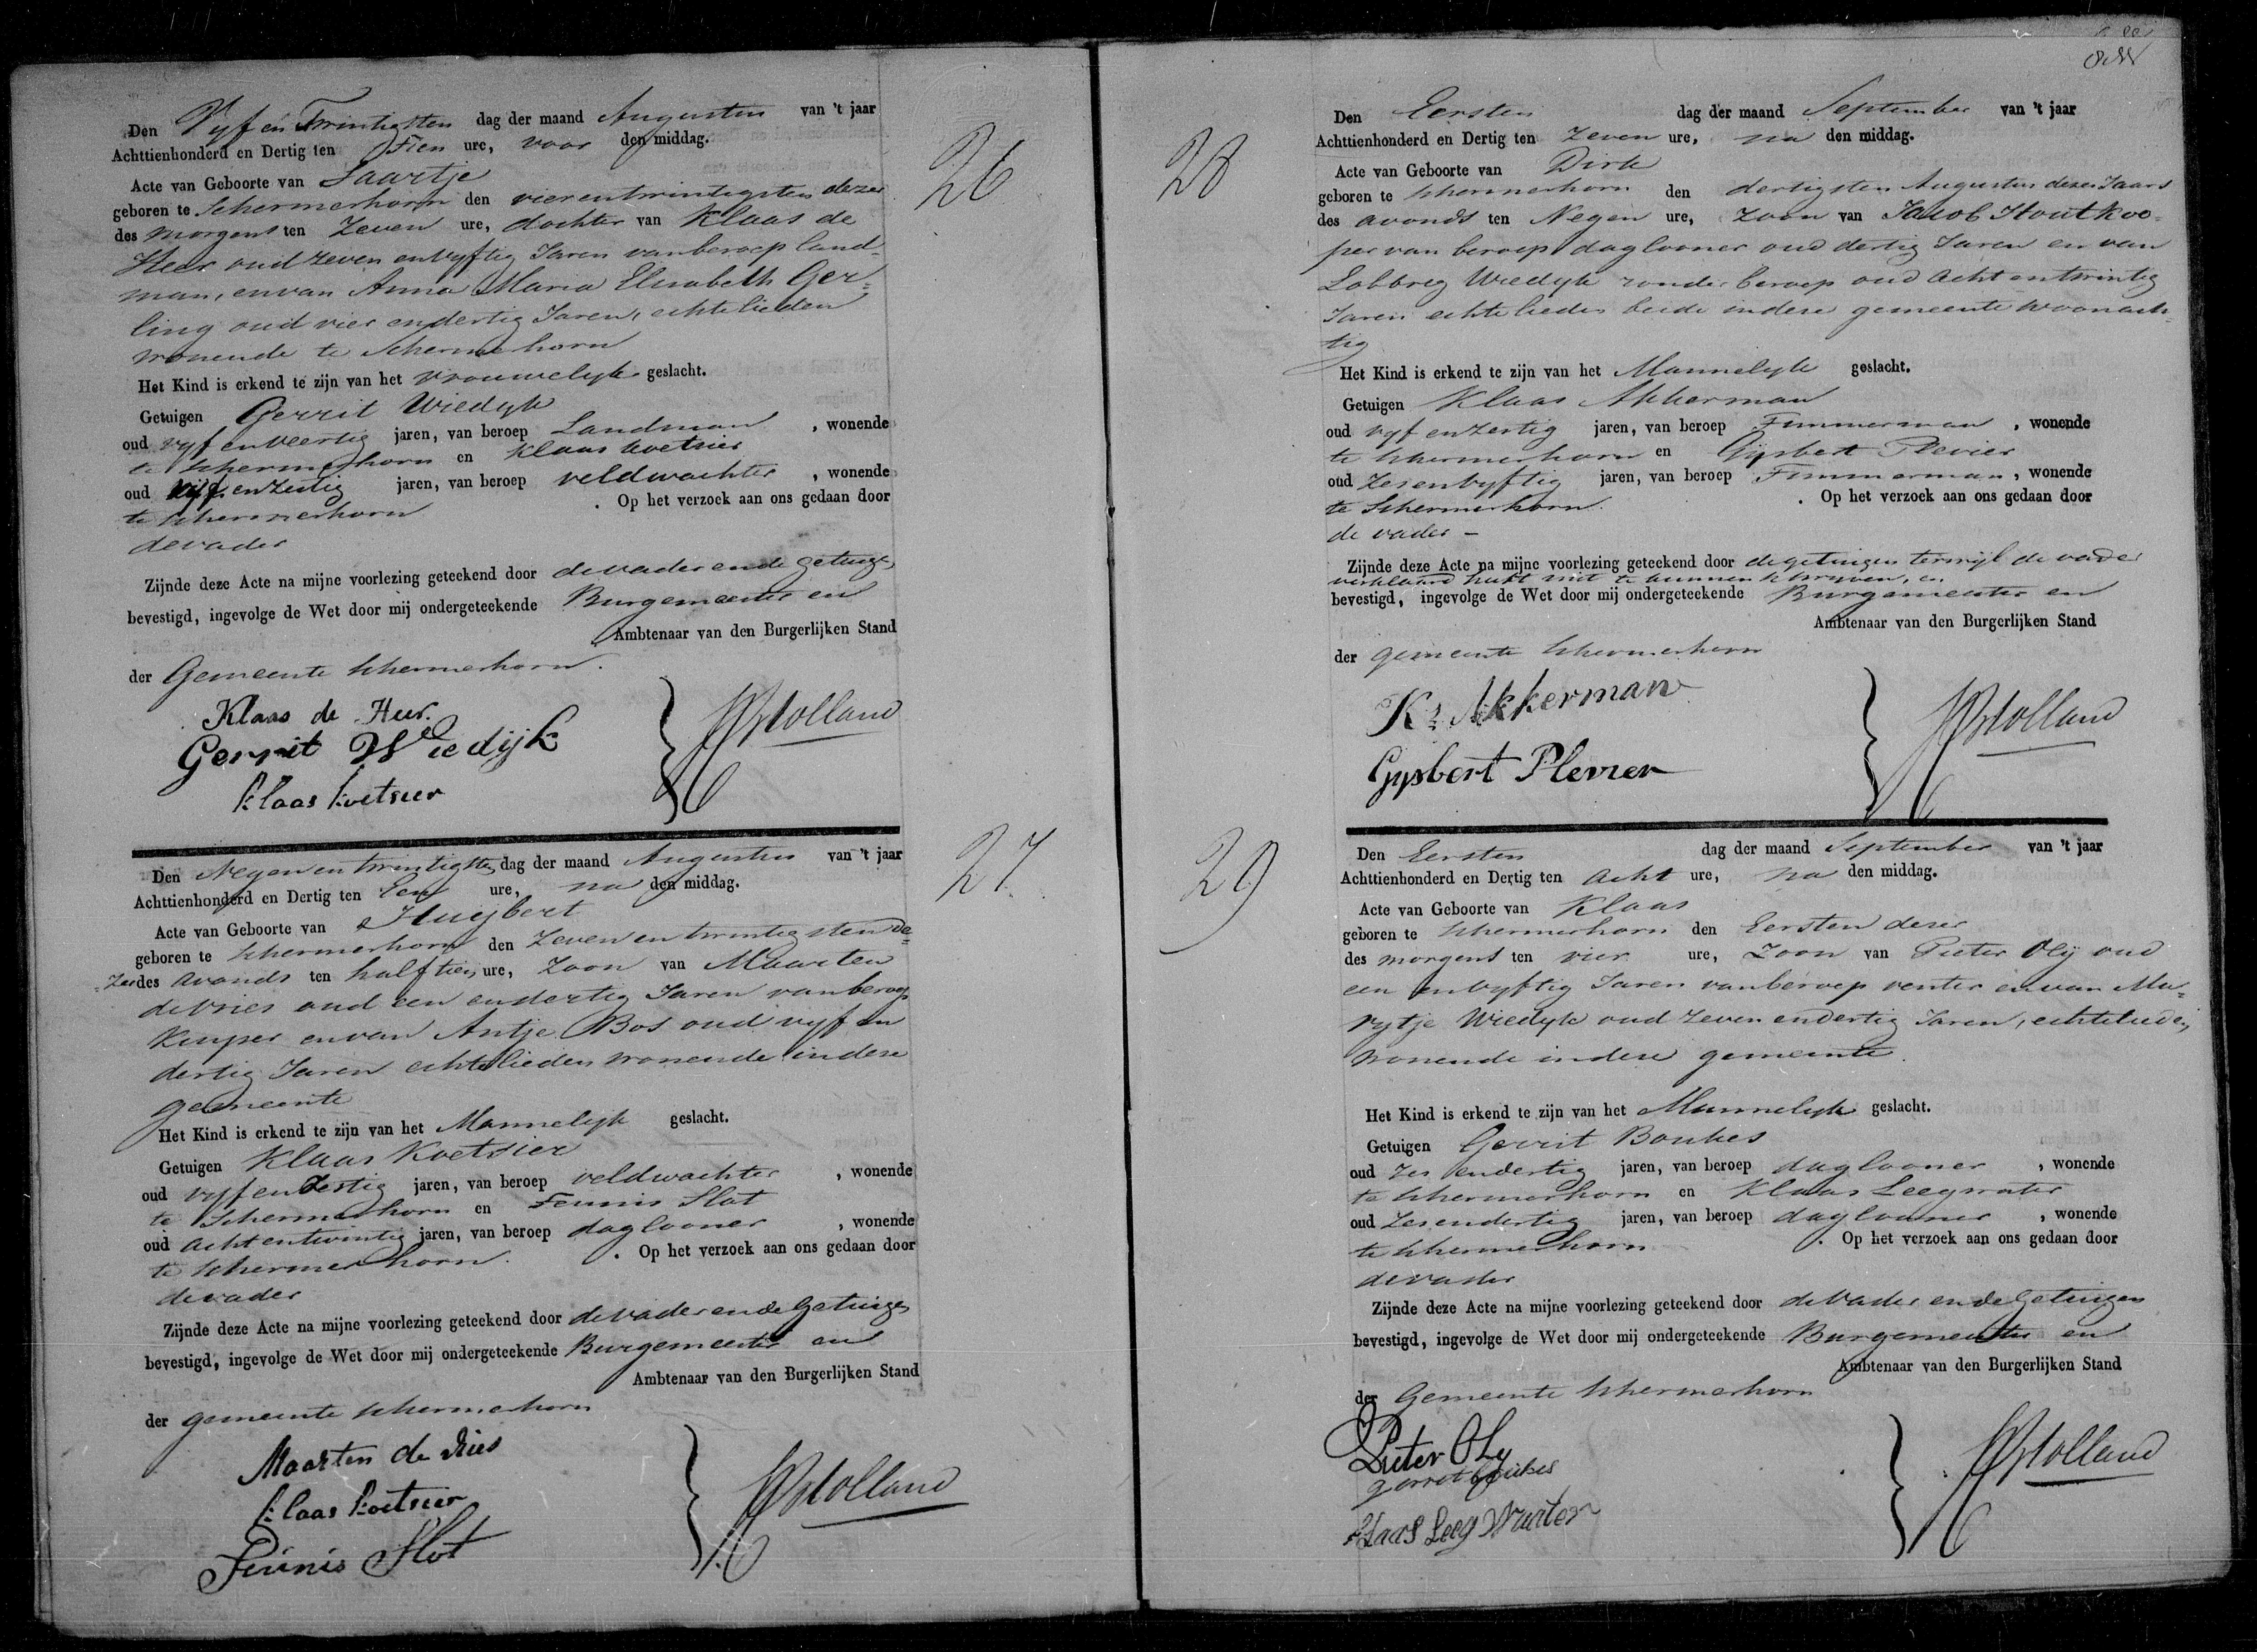 Den Vyf en Twintigsten dag der maand Augustus van 't jaar
Achttienhonderd en Dertig ten Tien ure, voor den middag.
Acte van Geboorte van Saartje
geboren te Schermerhorn den vierentwintigsten dezer
des morgens ten Zeven ure, dochter van Klaas de
Heer oud zeven en vyftig Jaren van beroep land-
man, en van Anna Maria Elisabeth Ger=
ling oud vier en dertig Jaren, echtelieden
wonende te Schermerhorn
Het Kind is erkend te zijn van het vrouwelyk geslacht.
Getuigen Gerrit Wiedyk
oud vyf en veertig jaren, van beroep Landman , wonende
te Schermerhorn en Klaas Koetsier
oud vijf en zestig jaren, van beroep veldwachter , wonende
te Schermerhorn . Op het verzoek aan ons gedaan door
de vader
Zijnde deze Acte na mijne voorlezing geteekend door de vader en de getuige,
bevestigd, ingevolge de Wet door mij ondergeteekende Burgemeester en
Ambtenaar van den Burgerlijken Stand
der Gemeente Schermerhorn.
Klaas de Heer.
Gerrit Wiedijk
Klaas Koetsier
Holland
26
Den Negen en twintigsten dag der maand Augustus van 't jaar
Achttienhonderd en Dertig ten Een ure, na den middag.
Acte van Geboorte van Huijbert
geboren te Schermerhorn den Zeven en twintigsten de=
=zer des avonds ten half tien ure, Zoon van Maarten
de Vries oud een en dertig Jaren van beroep
Kuyper en van Antje Bos oud vyf en
dertig Jaren echtelieden wonende in dese
gemeente
Het Kind is erkend te zijn van het Mannelyk geslacht.
Getuigen Klaas Koetsier
oud vyf en Zestig jaren, van beroep veldwachter , wonende
te Schermerhorn en Teunis Slot
oud acht en twintig jaren, van beroep daglooner , wonende
te Schermerhorn. . Op het verzoek aan ons gedaan door
de vader
Zijnde deze Acte na mijne voorlezing geteekend door de vader en de Getuigen
bevestigd, ingevolge de Wet door mij ondergeteekende Burgemeester en
Ambtenaar van den Burgerlijken Stand
der gemeente Schermerhorn
Maarten de Vries
Klaas Koetsier
Teunis Slot
Holland
27
28
Den Eersten dag der maand September van 't jaar
Achttienhonderd en Dertig ten Zeven ure, na den middag.
Acte van Geboorte van Dirk
geboren te Schermerhorn den dertigsten Augustus dezes Jaars
des avonds ten Negen ure, Zoon van Jacob Houtkoo=
per van beroep daglooner oud dertig Jaren en van
Lobbreg Wiedyk zonder beroep oud acht en twintig
Jaren echtelieden beide in dese gemeente woonach=
tig
Het Kind is erkend te zijn van het Mannelyk geslacht.
Getuigen Klaas Akkerman
oud vyf en zestig jaren, van beroep Timmerman , wonende
te Schermerhorn en Gijsbert Plevier
oud Zes en vyftig jaren, van beroep Timmerman , wonende
te Schermerhorn. . Op het verzoek aan ons gedaan door
de vader -
Zijnde deze Acte na mijne voorlezing geteekend door de getuigen terwijl de vader
verklaard heeft niet te kunnen schryven, en
bevestigd, ingevolge de Wet door mij ondergeteekende Burgemeester en
Ambtenaar van den Burgerlijken Stand
der gemeente Schermerhorn
Ks Akkerman
Gysbert Plevier
Holland
29
Den Eersten dag der maand September van 't jaar
Achttienhonderd en Dertig ten Acht ure, na den middag.
Acte van Geboorte van Klaas
geboren te Schermerhorn den Eersten dezer
des morgens ten vier ure, Zoon van Pieter Oly oud
een en vyftig Jaren van beroep venter en van Ma=
rytje Wiedyk oud zeven en dertig Jaren, echtelieden
wonende in dese gemeente.
Het Kind is erkend te zijn van het Mannelyk geslacht.
Getuigen Gerrit Boukes
oud Zes en dertig jaren, van beroep daglooner , wonende
te Schermerhorn en Klaas Leegwater
oud Zes en dertig jaren, van beroep daglooner , wonende
te Schermerhorn . Op het verzoek aan ons gedaan door
de vader
Zijnde deze Acte na mijne voorlezing geteekend door de Vader en de Getuigen
bevestigd, ingevolge de Wet door mij ondergeteekende Burgemeester en
Ambtenaar van den Burgerlijken Stand
der Gemeente Schermerhorn
Pieter Oly
gerret boukes
Klaas Leeg Water
Holland